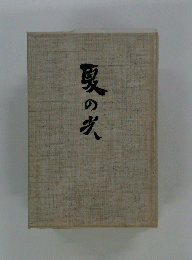 夏の光